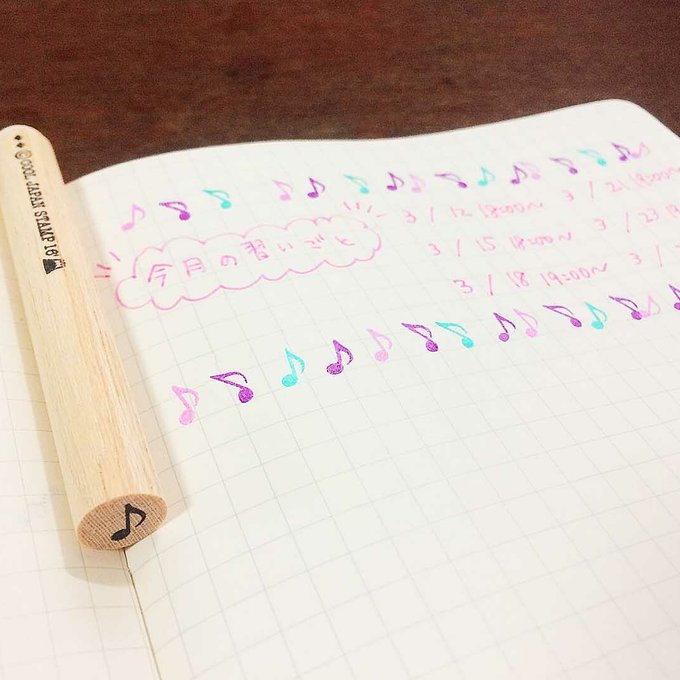 ©COOL JAPAN STAMP 16
今月の習いごと
3/12 18:00~
3/15 18:00~
3/18 19:00~
3/21 18:00~
3/23
3/